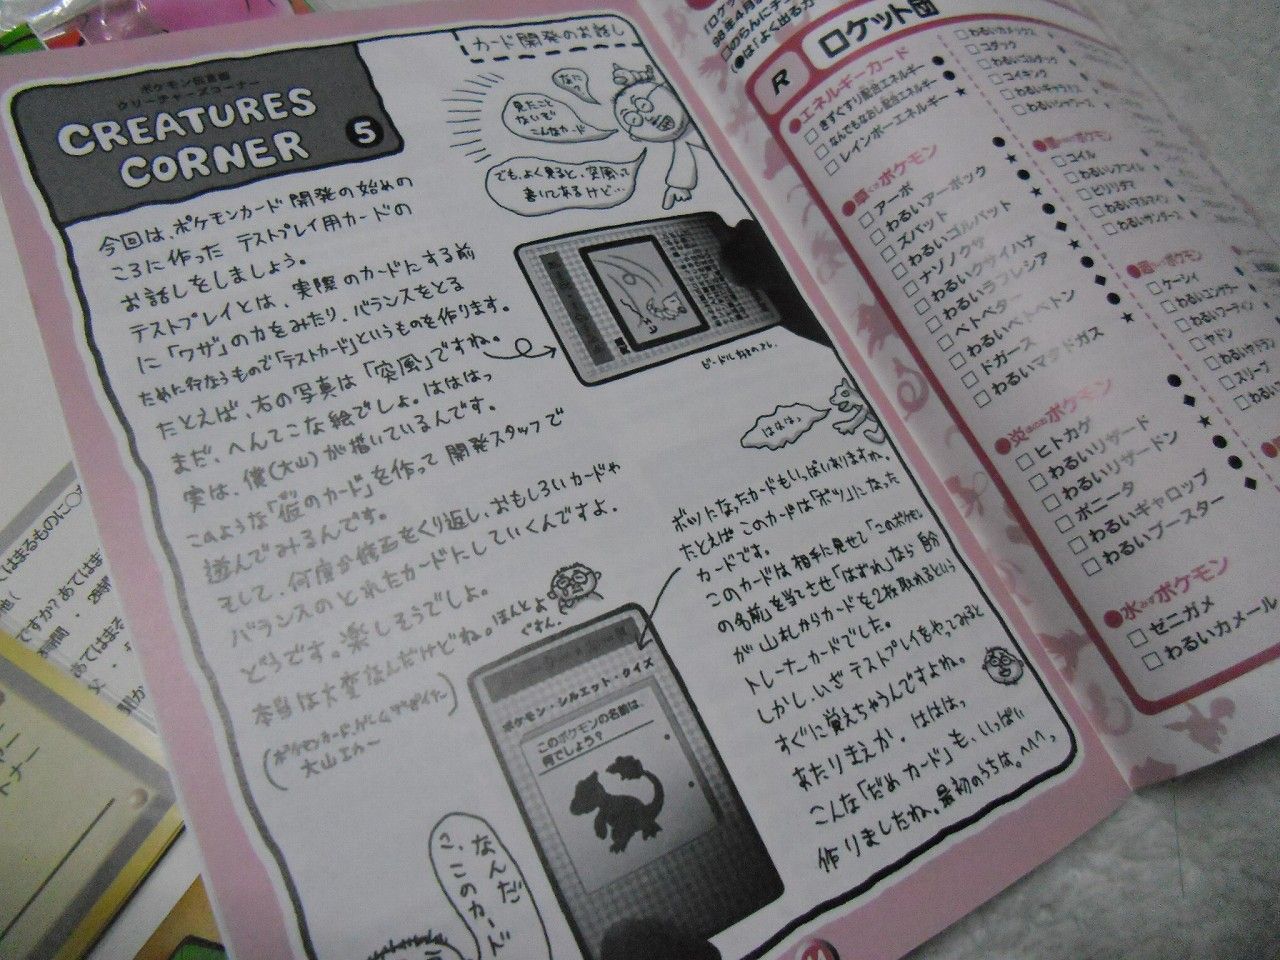 カード開発のお話し
ポケモン伝言版
クリーチャーズコーナー
CREATURES
CORNER
5
なに?
見たこと
ないぞ
こんなカード
でも、よく見ると、突風って
書いてあるけど…
今回は、ポケモンカード開発の始めの
ころに作った テストプレイ用カードの
お話しをしましょう。
テストプレイとは、実際のカードにする前
に「ワザ」の力をみたり、バランスをとる
ために行なうもので「テストカード」というものを作ります。
たとえば、右の写真は「突風」ですね。
まだ、へんてこな絵でしょ。はははっ
実は、僕(大山)が描いているんです。
このような「仮のカード」を作って 開発スタッフで
遊んでみるんです。
そして、何度か修正をくり返し、おもしろいカードや
バランスのとれたカードにしていくんですよ。
どうです。楽しそうでしょ。
本当は大変なんだけどね。ほんとよ
ぐすん。
(ポケモンカードゲームデザイナー
大山
ははは。
ボツになったカードもいっぱいありますね。
たとえばこのカードは「ボツ」になった
カードです。
このカードは相手に見せて「このポケモン
の名前」を当てさせ「はずれ」なら自分
が山札からカードを2枚取れるという
トレーナーカードでした。
しかし、いざテストプレイをやってみると
すぐに覚えちゃうんですよね。
あたりまえか・はははっ
こんな「だめカード」も、いっぱい
作りましたね。最初のうちは。^^^,
ポケモン・シルエット・クイズ
このポケモンの名前は、
何でしょう?
なんだ
このカード
R
ロケット団
●エネルギーカード
□きずぐすり配合エネルギー ●
□なんでもなおし配合エネルギー ●
□レインボーエネルギー ★
●草ポケモン
□アーボ ●
□わるいアーボック ★
□ズバット ●
□わるいゴルバット ★
□ナゾノクサ ●
□わるいクサイハナ ◆
□わるいラフレシア ★
□ベトベター ●
□わるいベトベトン ◆
□ドガース ●
□わるいマタドガス ★
●炎ポケモン
□ヒトカゲ ●
□わるいリザード ◆
□わるいリザードン ★
□ポニータ ●
□わるいギャロップ ●
□わるいブースター ◆
●水ポケモン
□ゼニガメ
□わるいカメール
□わるいカメックス
□コダック
□わるいゴルダック
□コイキング
□わるいギャラドス
□わるいシャワーズ
□コイル
□わるいレアコイル
□ビリリダマ
□わるいマルマイン
□わるいサンダース
□ケーシィ
□わるいユンゲラー
□わるいフーディン
□ヤドン
□わるいヤドラン
□スリープ